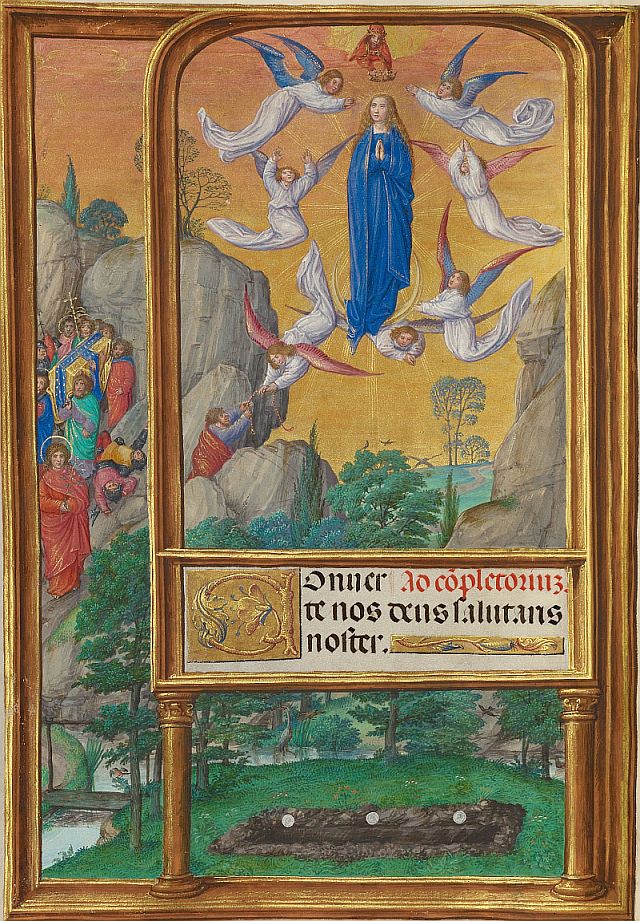 Conuer Ad cõpletoriuz.
te nos deus ſalutaris
noſter.